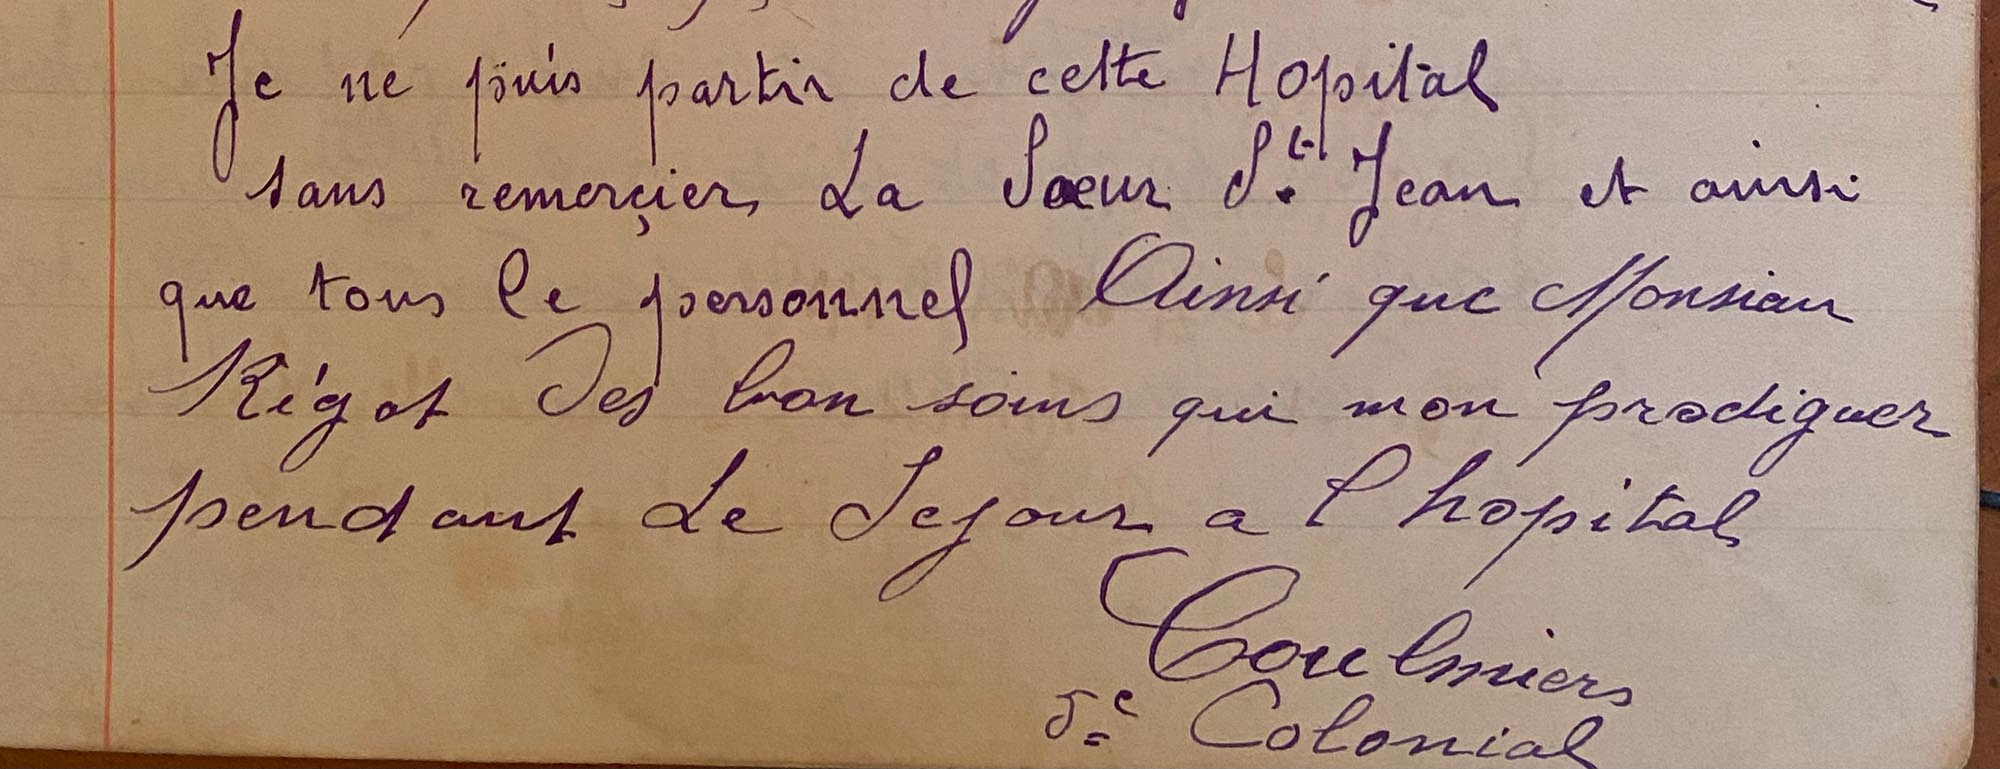 Je ne puis partir de cette Hopital
sans remerçier La Sœur St. Jean et ainsi
que tous le personnel Ainsi que Monsieur
Régot Des bon soins qui mon prodiguer
pendant Le Sejour a l hopital
Coulmiers
5e Colonial